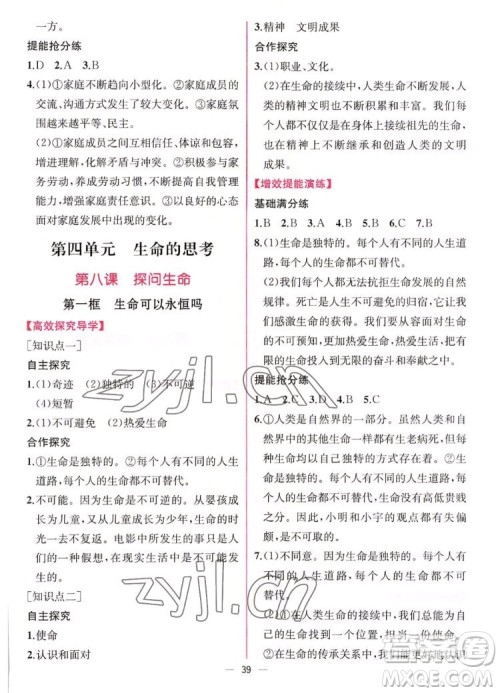 一方。
提能抢分练
1.D 2.A 3.B
4.(1)①家庭不断趋向小型化。②家庭成员的
交流、沟通方式发生了较大变化。③家庭氛
围越来越平等、民主。
(2)①家庭成员之间互相信任、体谅和包容,
增进理解。②有家庭责任感,培养劳动意
识,养成劳动习惯,不断提高自主生活的能
力和为家人服务的意识。③以良好的心态
面对家庭发展中出现的变化。
第四单元 生命的思考
第八课 探问生命
第一框 生命可以永恒吗
【高效探究导学】
[知识点一]
自主探究
1.(1)奇迹 (2)独特的 (3)不可逆
(4)短暂
2.(1)不可避免 (2)热爱生命
合作探究
1.①生命是独特的。②每个人有不同的人生
道路,每个人的生命都不可替代。
2.不可能。因为生命是不可逆的。从婴儿成
长为儿童,又从儿童成长为少年,生命的时
光无法再返复。电影中所说的只是人们
的一种假想,在现实生活中是不可能发
生的。
[知识点二]
自主探究
1.使命
2.认识和面对
3.精神 文明成果
合作探究
(1)职业、文化。
(2)在生命的接续中,人类生命不断发展,人
类的精神文明也不断积累和丰富,我们
每个人都不仅仅是在身体上接续祖先的生
命,也在精神上不断继承和创造人类的文明
成果。
【增效提能演练】
基础满分练
1.B 2.B 3.A 4.B 5.B 6.C 7.B
8.(1)生命是独特的。每个人有不同的人生道
路,每个人的生命都不可替代。
(2)我们每个人都无法抗拒生命发展的自然
规律。死亡是人生不可避免的归宿,它让我
们感激生命的获得。因为生命来之不易,独
特而不可预知,更加热爱生命,热爱生活,把有
限的生命投入到无限的人生奋斗中。
提能抢分练
1.A 2.C 3.D 4.A 5.C
6.①人类是自然界的一部分。②大自然中的
生命同人类生命一样,都有生存的权利。
③生命是独特的。虽然每个人都有不同的
人生道路,但每个人的生命都是不可替代
的。因此,小明和小宇的观点都有失
偏颇。
7.(1)不同意。因为生命是独特的。每个人有
不同的人生道路,每个人的生命都不可
替代。
(2)①在生命的接续中,人类生命不断发展,
我们能够为自己的生命找到一个位置,担当
一份使命。②在人类生命的接续中,我们总
39
zyjl.cn